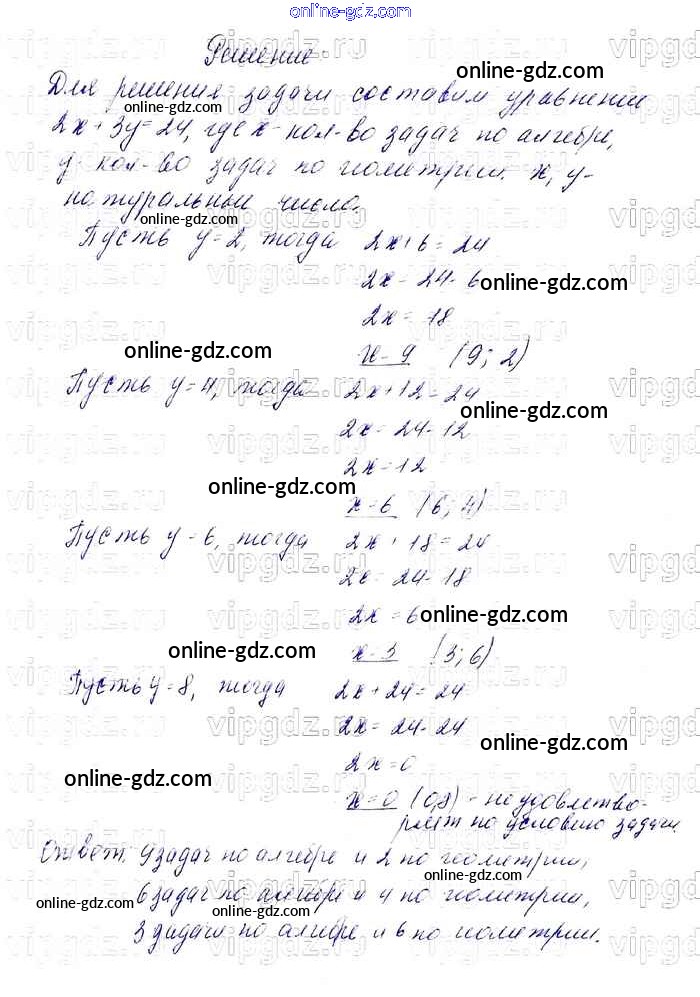 online-gdz.com
Решение
online-gdz.com
Для решения задачи составим уравнение
online-gdz.com
2x + 3y = 24, где x - кол-во задач по алгебре,
y - кол-во задач по геометрии. x, y -
натуральные числа.
online-gdz.com
Пусть y = 2, тогда 2x + 6 = 24
2x = 24 - 6
online-gdz.com
2x = 18
online-gdz.com
x = 9 (9; 2)
Пусть y = 4, тогда 2x + 12 = 24
online-gdz.com
2x = 24 - 12
2x = 12
online-gdz.com
x = 6 (6; 4)
Пусть y = 6, тогда 2x + 18 = 24
2x = 24 - 18
2x = 6
online-gdz.com
online-gdz.com
x = 3 (3; 6)
Пусть y = 8, тогда 2x + 24 = 24
2x = 24 - 24
online-gdz.com
2x = 0
online-gdz.com
x = 0 (0,8) - не удовлетво-
ряет по условию задачи.
Ответ: 9 задач по алгебре и 2 по геометрии,
online-gdz.com
6 задач по алгебре и 4 по геометрии,
online-gdz.com
online-gdz.com
3 задачи по алгебре и 6 по геометрии.